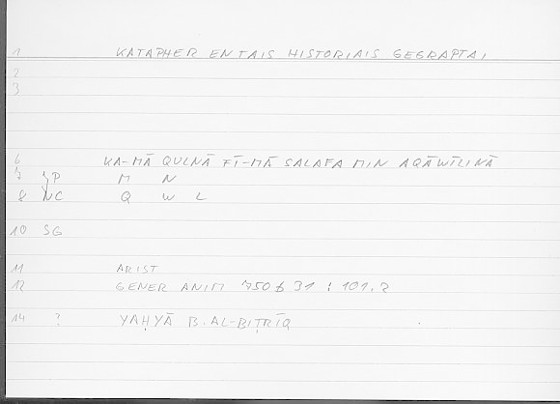 1 KATAPHER EN TAIS HISTORIAIS GEGRAPTAI
2
3
6 KA-MĀ QULNĀ FĪ-MĀ SALAFA MIN AQĀWĪLINĀ
M N
8 NC Q W L
10 SG
11 ARIST
12 GENER ANIM 750 b 31 : 101.2
14 ? YAḤYĀ B. AL-BIṬRĪQ